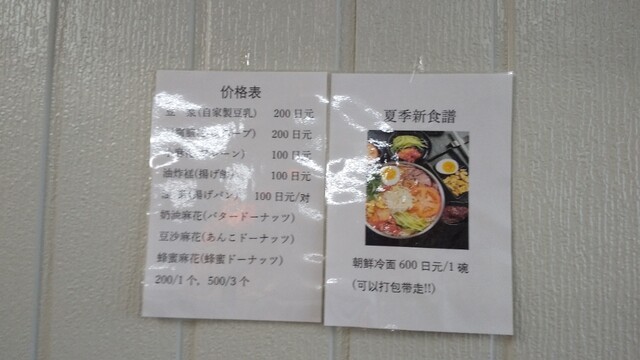 价格表
浆(自家製豆乳) 200日元
200日元
100日元
油炸糕(揚げ 100日元
(揚げパン) 100日元/对
奶油麻花(バタードーナッツ)
豆沙麻花(あんこドーナッツ)
蜂蜜麻花(蜂蜜ドーナッツ)
200/1个，500/3个
夏季新食譜
朝鮮冷面600日元/1碗
(可以打包带走!!)